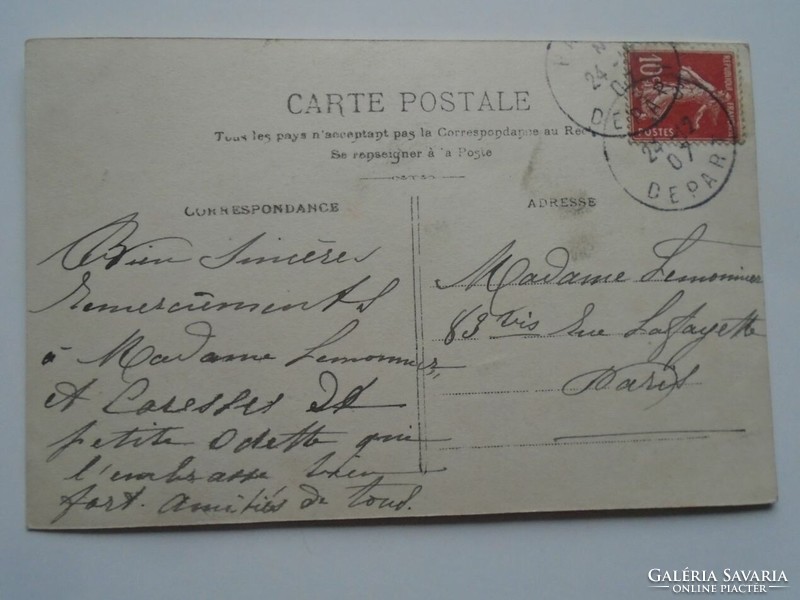 CARTE POSTALE
Tous les pays n'acceptant pas la Correspondance au Rec
Se renseigner à la Poste
CORRESPONDANCE
ADRESSE
10
POSTES
24 -12
07
DEPART
24 -12
07
DEPAR
Bien Sincères
Remerciements
à Madame Lemonnier
et Caresses de
petite Odette qui
l'embrasse bien
fort. Amitiés de tous.
Madame Lemonnier
83 bis Rue Lafayette
Paris
GALÉRIA SAVARIA
ONLINE PIACTÉR